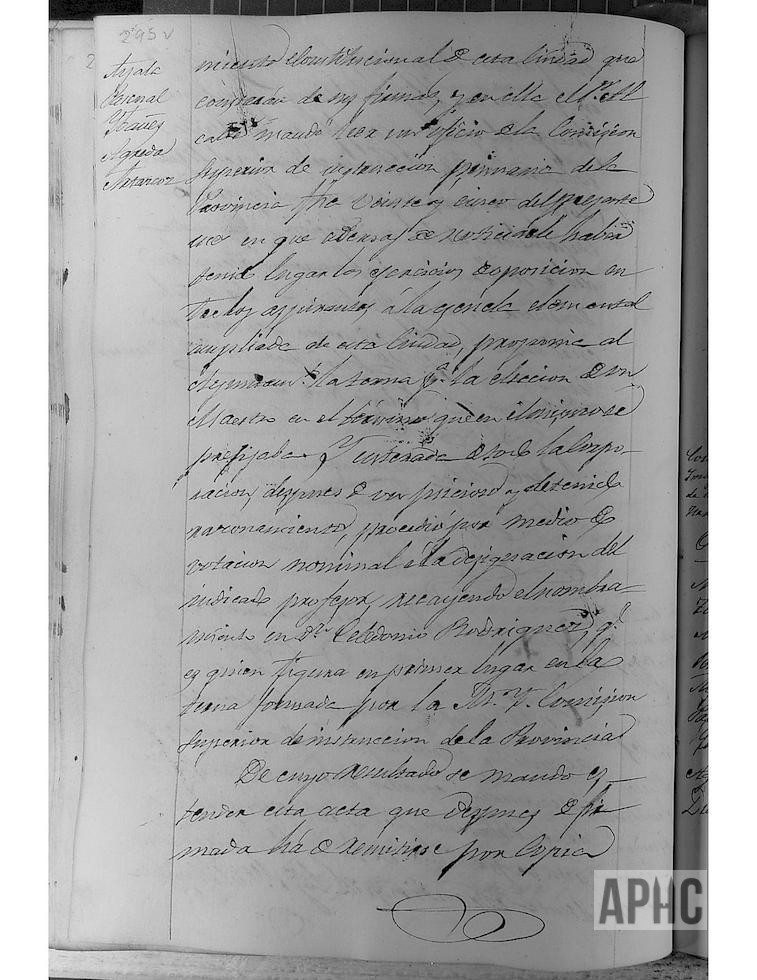 295 v
Ayala
Pascual
Ybañez
Agreda
Matarcon
miento Constitucional de esta Ciudad que
constarán de sus firmas, y en ella el Sr. Al
calde mandó leer un oficio de la Comision
Superior de instruccion primaria de la
Provincia fha veinte y cinco del presente
mes en que ademas de noticiarle habia
tenido lugar los ejercicios de oposicion en
tre los aspirantes á la escuela elemental
ampliada de esta Ciudad, proponia al
Ayuntam.to la terna p.a la eleccion de un
Maestro en el término que en el mismo se
prefijaba. Y enterada de todo la Corpo-
racion, despues de un y detenido
razonamiento, procedió por medio de
votacion nominal a la designacion del
indicado profesor, recayendo el nombra-
miento en Dn. Celedonio Rodriguez, q.e
es quien figura en primer lugar en la
terna formada por la M. Y. Comision
Superior de instruccion de la Provincia
De cuyo resultado se mandó es-
tender esta acta que despues de fir
mada há de remitirse por Copia
APHC